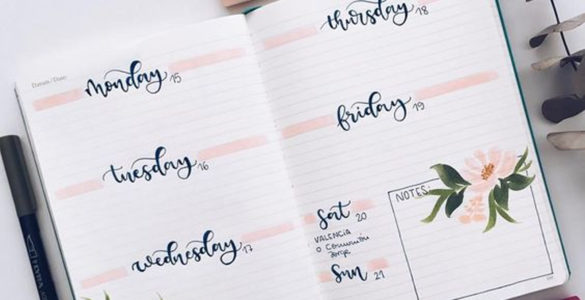 Datum / Date:
monday 15
tuesday 16
wednesday 17
thursday 18
friday 19
Sat 20
VALENCIA
o Comunión
Jorge
Sun 21
NOTES: